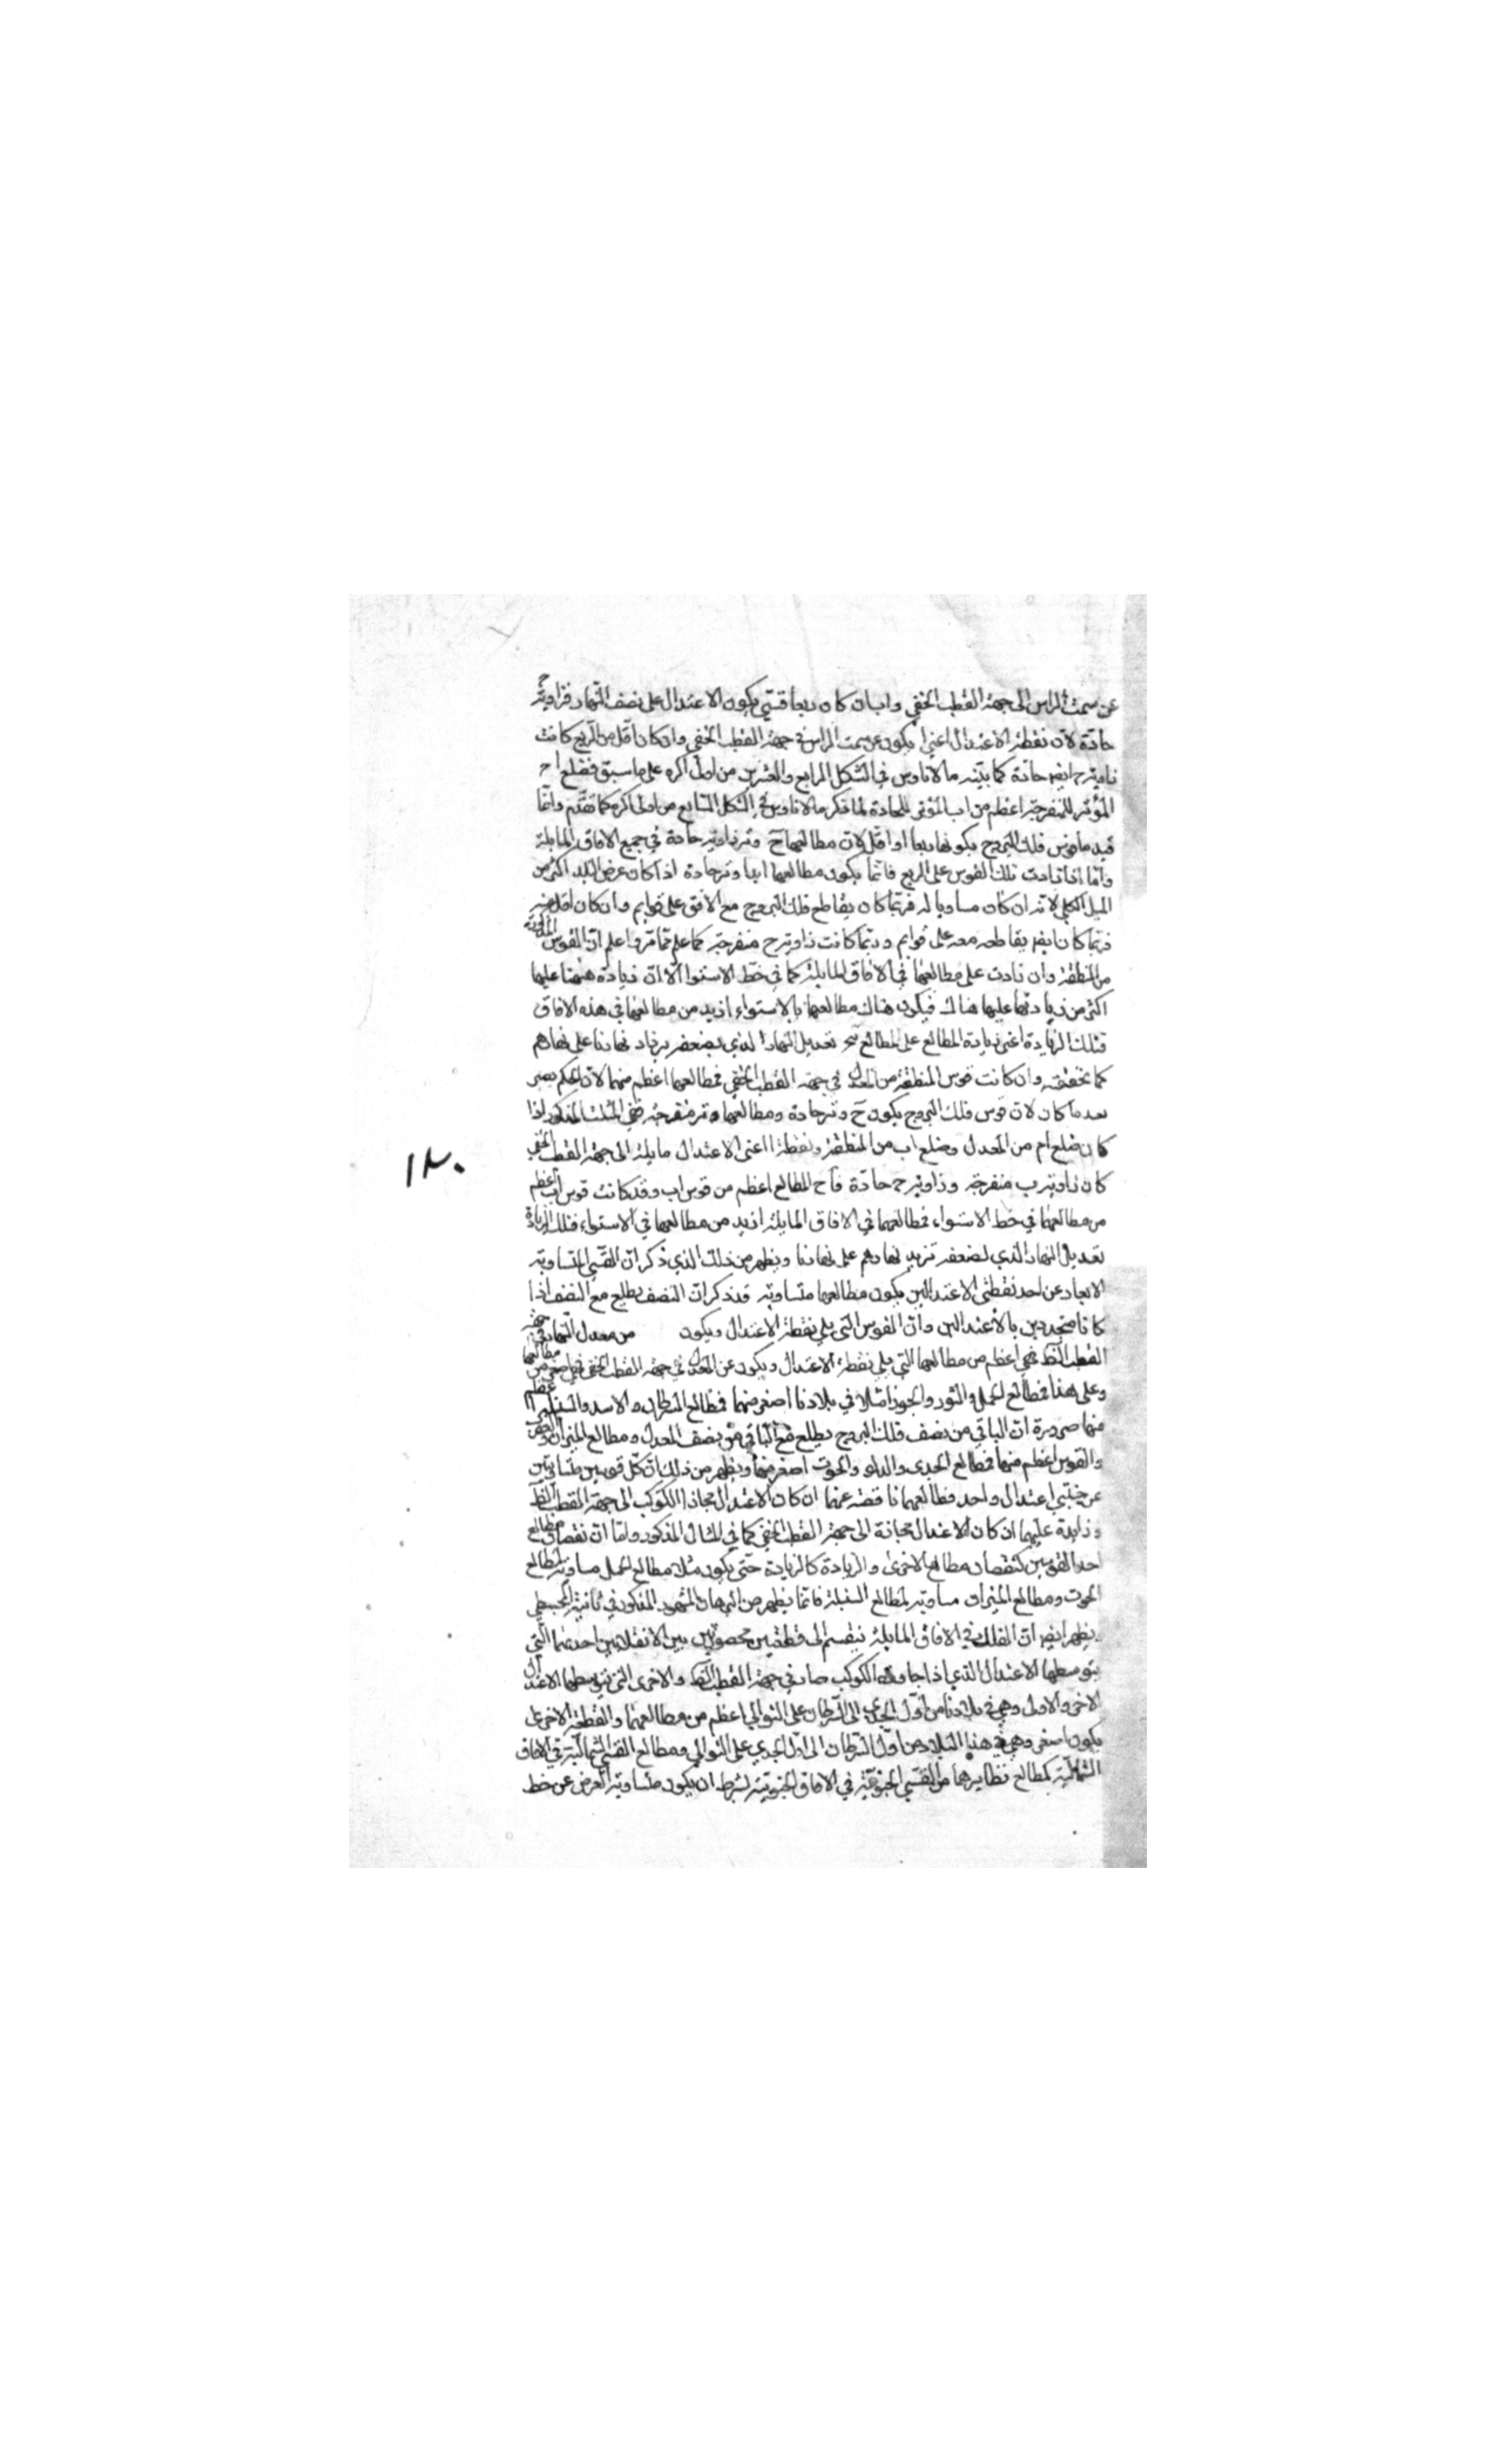 عن سمت الراس الى جهة القطب الخفي و اب ان كان ربعا قسي يكون الاعتدال على نصف النهار فزاوية ح
حادة لان نقطة الاعتدال اعني ا يكون عن سمت الراس في جهة القطب الخفي وان كان اقل من الربع كانت
زاوية ح ايضا حادة كما بينه مالاناوس في الشكل الرابع والعشرين من اولى اكره على ما سبق فضلع اح
الموتر للمنفرجة اعظم من اب الموتر للحادة لما ذكر مالاناوس في الشكل السابع من اولى اكره كما تقدم وانما
قيدنا قوس فلك البروج بكونها ربعا او اقل لان مطالعها ح وتر زاوية حادة في جميع الافاق المايلة
واما اذا زادت تلك القوس على الربع فانما يكون مطالعها ابدا وتر حادة اذا كان عرض البلد اكثر من
الميل الكلي لانه ان كان مساويا له فربما كان يقاطع فلك البروج مع الافق على قوايم وان كان اقل منه
فربما كان ايضا يقاطعه معه على قوايم وربما كانت زاوية ح منفرجة كما علم مما مر واعلم ان القوس المذكورة
من المنطقة وان زادت على مطالعها في الافاق المايلة كما في خط الاستوا الا ان زيادة هيهنا عليها
اكثر من زيادتها عليها هناك فيكون هناك مطالعها بالاستواء ازيد من مطالعها في هذه الافاق
فتلك الزيادة اعنى زيادة المطالع على المطالع تعديل النهار الذي بضعفه يزداد نهارنا على نهارهم
كما تحققته وان كانت قوس المنطقة من المعدل في جهة القطب الخفي فمطالعها اعظم منها لان الحكم يصير
بعد ما كان لان قوس فلك البروج يكون ح وتر حادة ومطالعها وتر منفرجة ففي المثلث المذكور اذا
كان ضلع ام من المعدل وضلع اب من المنطقة ونقطة ا اعنى الاعتدال مايلة الى جهة القطب الخفي
كان زاوية ب منفرجة وزاوية ح حادة فاح المطالع اعظم من قوس اب وقد كانت قوس اب اعظم
من مطالعها في خط الاستواء فمطالعها في الافاق المايلة ازيد من مطالعها في الاستواء فتلك الزيادة
تعديل النهار الذي بضعفه تزيد نهارهم على نهارنا ويظهر من ذلك الذي ذكر ان القسي المتساوية
الابعاد عن احد نقطتي الاعتدالين يكون مطالعها متساوية قد ذكر ان النصف يطلع مع النصف اذا
كانا متحددين بالاعتدالين وان القوس التي يلي نقطة الاعتدال ويكون من معدل النهار في جهة
القطب الظ فهي اعظم من مطالعها التي يلي نقطة الاعتدال ويكون عن المعدل في جهة القطب الخفي فهي اصغر من مطالعها
وعلى هذا فمطالع الحمل والثور والجوزا مثلا في بلادنا اصغر منها فمطالع السرطان والاسد والسنبلة اعظم
منها ضرورة ان الباقي من نصف فلك البروج يطلع مع الباقي من نصف المعدل ومطالع الميزان والعقرب
والقوس اعظم منها فمطالع الجدى والدلو والحوت اصغر منها ويظهر من ذلك ان كل قوسين متساويتين
عن جنبي اعتدال واحد فمطالعهما ناقصة عنهما ان كان الاعتدال مجاز الكوكب الى جهة القطب الظ
وزايدة عليهما ان كان الاعتدال مجازه الى جهة القطب الخفي كما في المثال المذكور واما ان نقصان مطالع
احد القوسين كنقصان مطالع الاخرى والزيادة كالزيادة حتى يكون مثلا مطالع الحمل مساوية لمطالع
الحوت ومطالع الميزان مساوية لمطالع السنبلة فانما يظهر من البرهان المشهور المذكور في ثانية المجسطي
ويظهر ايضا ان الفلك في الافاق المايلة ينقسم الى قطعتين محصورتين بين الانقلابين احديهما التي
يتوسطها الاعتدال الذي اذا جاوزه الكوكب صار في جهة القطب الظ والاخرى التي يتوسطها الاعتدال
الاخر والاولى وهي في بلادنا من اول الجدي الى السرطان على التوالي اعظم من مطالعها والقطعة الاخرى
يكون اصغر وهي في هذه البلاد من اول السرطان الى اول الجدي على التوالي ومطالع القسي الشمالية في الافاق
الشمالية كمطالع نظايرهما من القسي الجنوبية في الافاق الجنوبية بشرط ان يكون متساوية العرض عن خط
١٣٠